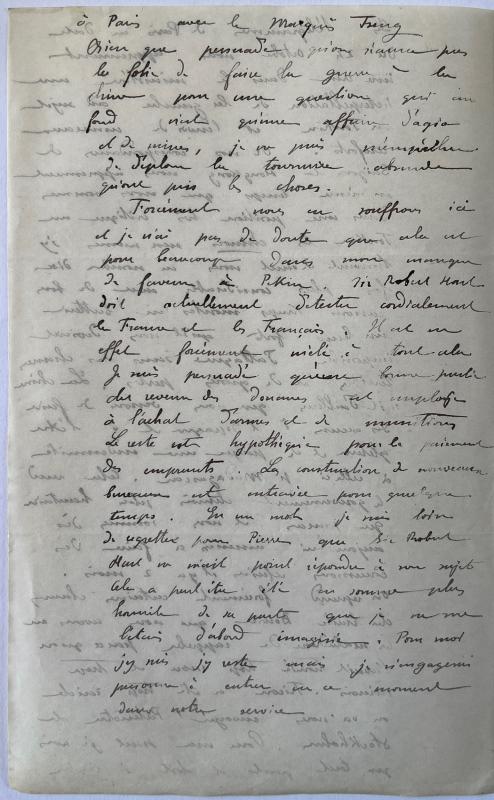 à Paris avec le Marquis Tseng
Bien que persuadé qu'on n'aura pas
la folie de faire la guerre à la
Chine pour une question qui au
fond n'est qu'une affaire d'agio
et de mines, je ne puis m'empêcher
de déplorer la tournure absurde
qu'ont pris les choses.
Forcément nous en souffrons ici
et je n'ai pas de doute que cela est
pour beaucoup dans mon manque
de faveur à Pékin. Sir Robert Hart
doit actuellement détester cordialement
la France et les Français. Il est en
effet forcément mêlé à tout cela
Je suis persuadé qu'une bonne partie
du revenu des douanes est employée
à l'achat d'armes et de munitions
Le reste est hypothéqué pour le paiement
des emprunts. La construction de nouveaux
bureaux est entravée pour quelque
temps. En un mot je suis loin
de regretter pour Pierre que Sir Robert
Hart n'ait point répondu à son sujet
Cela a peut être été en somme plus
honnête de sa part que je ne me
l'étais d'abord imaginé. Pour moi
j'y suis j'y reste mais je n'engagerai
personne à entrer en ce moment
dans notre service